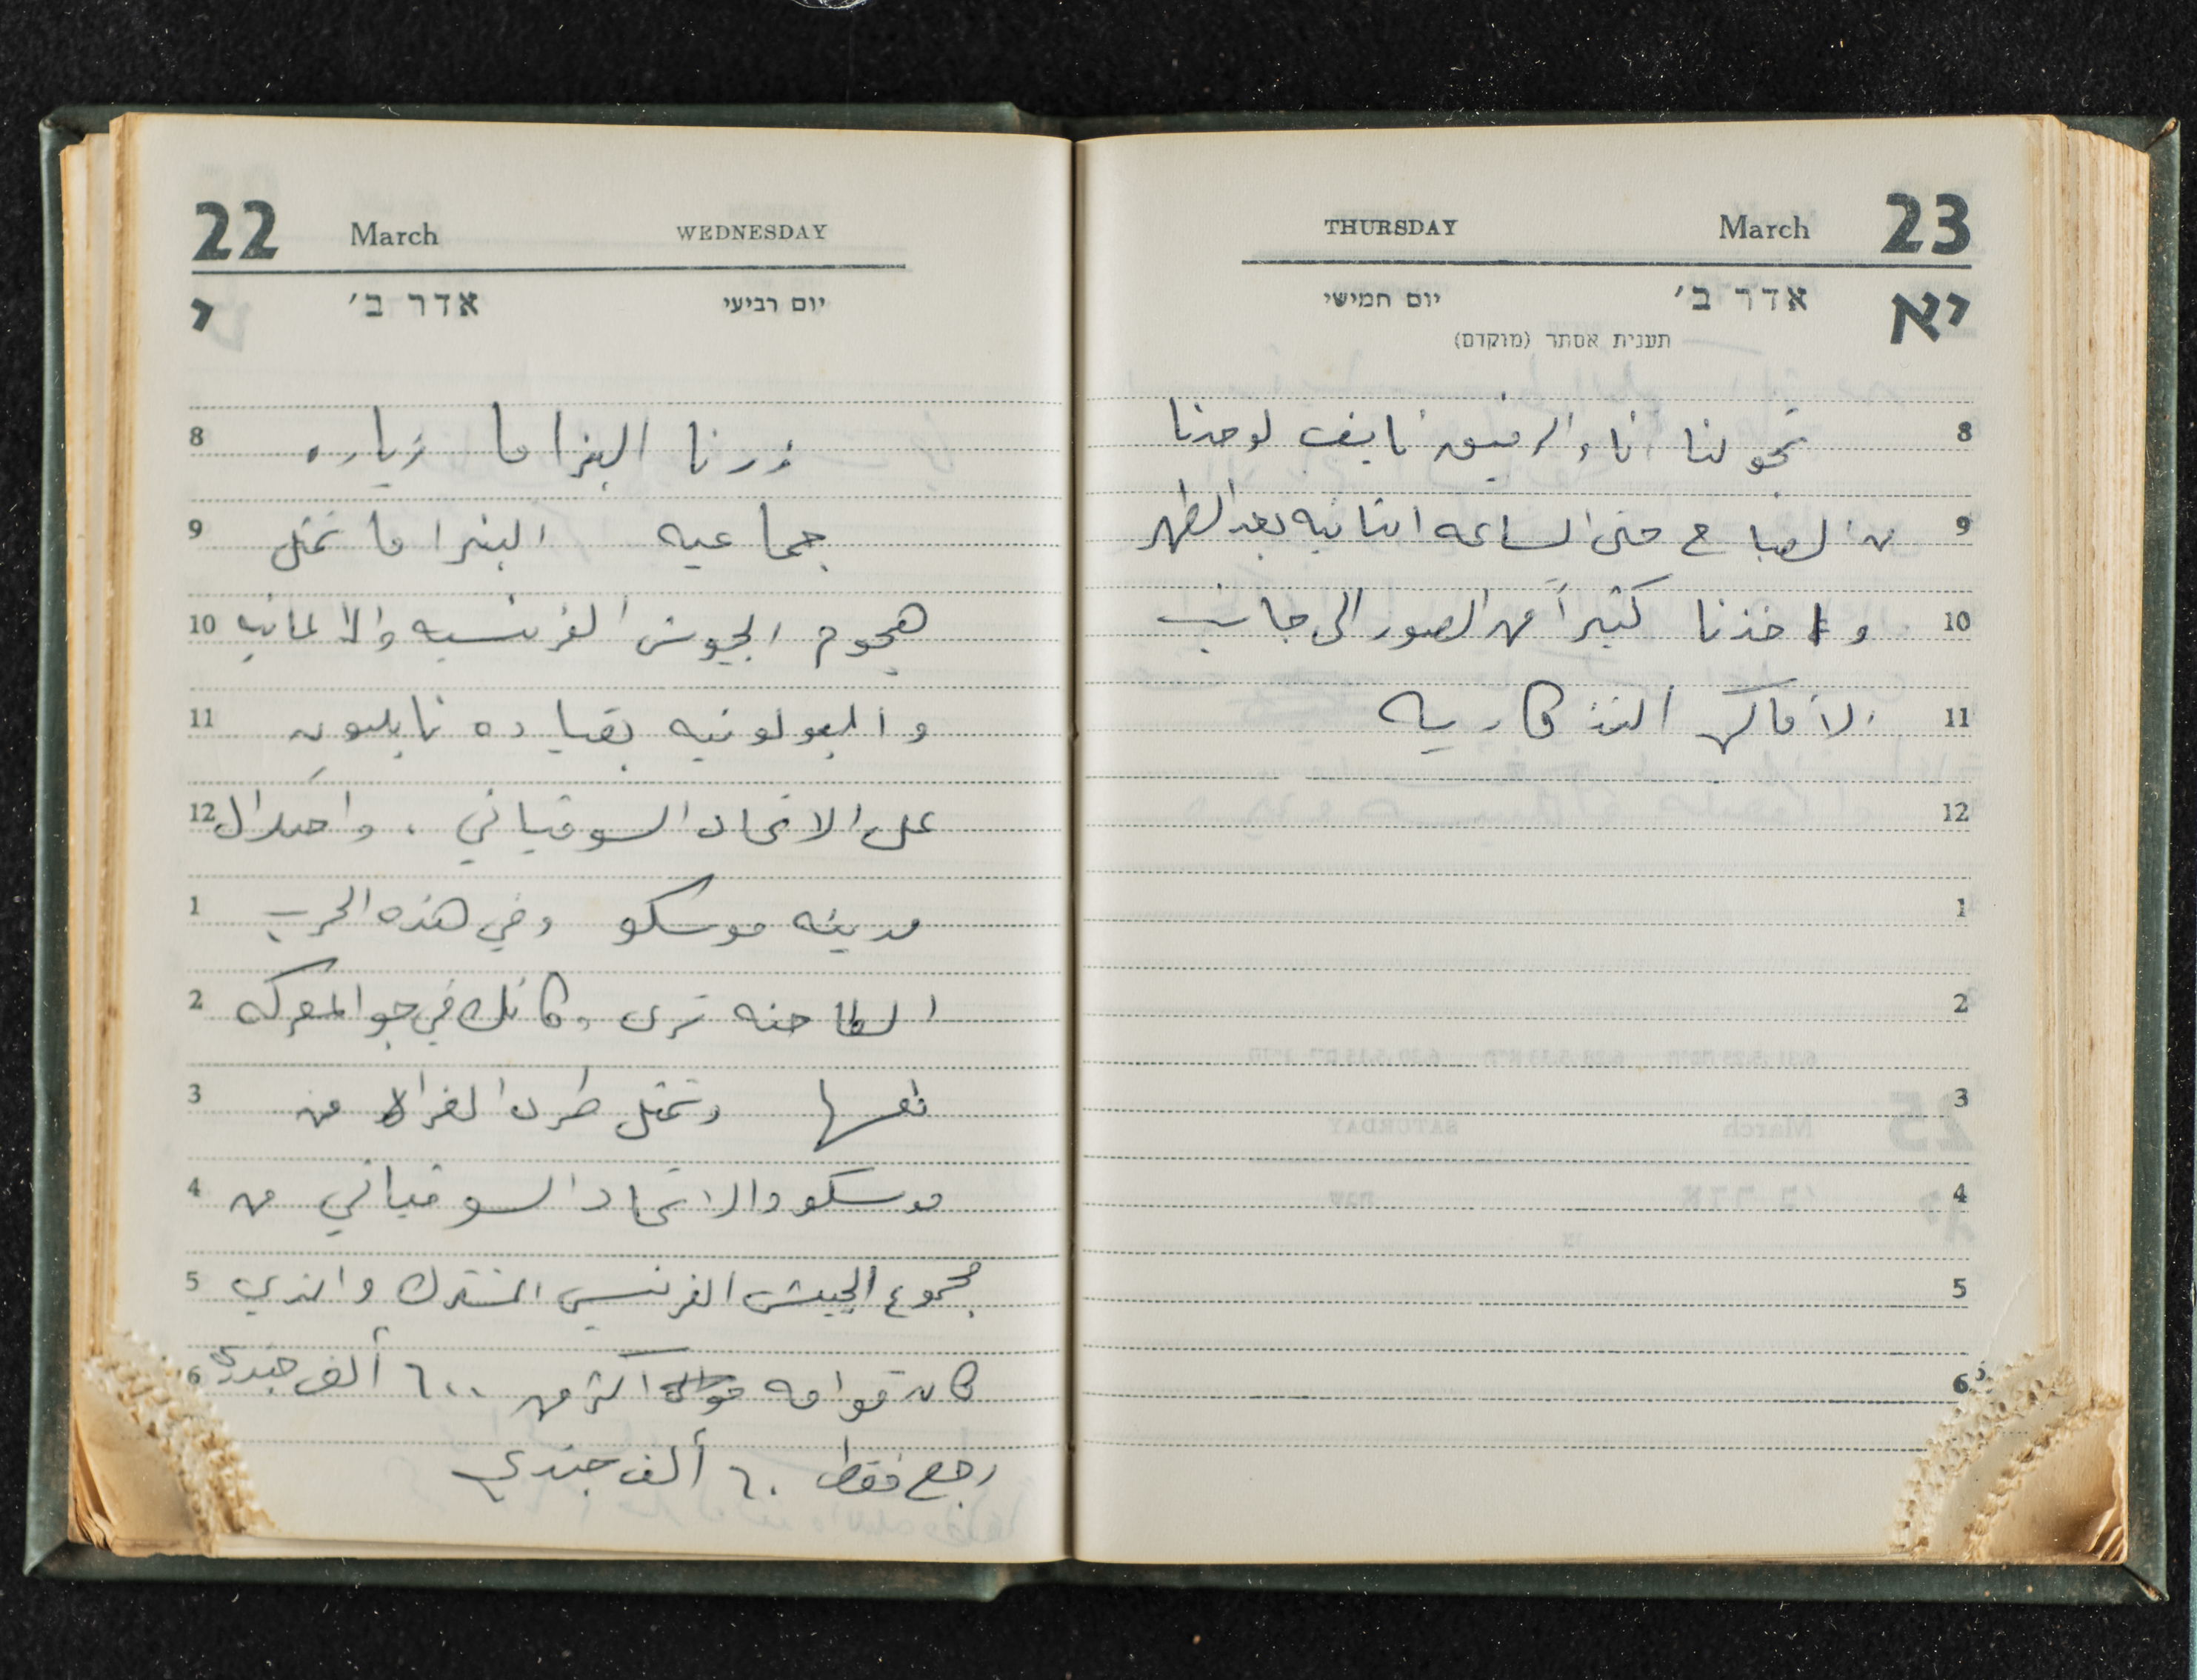 22 March WEDNESDAY
י אדר ב׳ יום רביעי
8 زرنا البنراما زياره
9 جماعيه البنراما تمثل
10 هجوم الجيوش الفرنسيه والالمانيه
11 والبولونيه بقياده نابليون
12 على الاتحاد السوفياتي ، واحتلال
1 مدينه موسكو وفي هذه الحرب
2 الطاحنه ترى وكانك في جو المعركه
3 نفسها وتمثل طرد الغزاه من
4 موسكو والاتحاد السوفياتي من
5 مجموع الجيش الفرنسي المشترك والذي
6 كان قوامه اكثر من ٦٠٠ ألف جندي
رجع فقط ٦٠ ألف جندي
THURSDAY March 23
יא אדר ב׳ יום חמישי
תענית אסתר (מוקדם)
8 تجولنا انا والرفيق نايف لوحدنا
9 من الصباح حتى الساعه الثانيه بعد الظهر
10 واخذنا كثيراً من الصور الى جانب
11 الاماكن التذكاريه
12
1
2
3
4
5
6